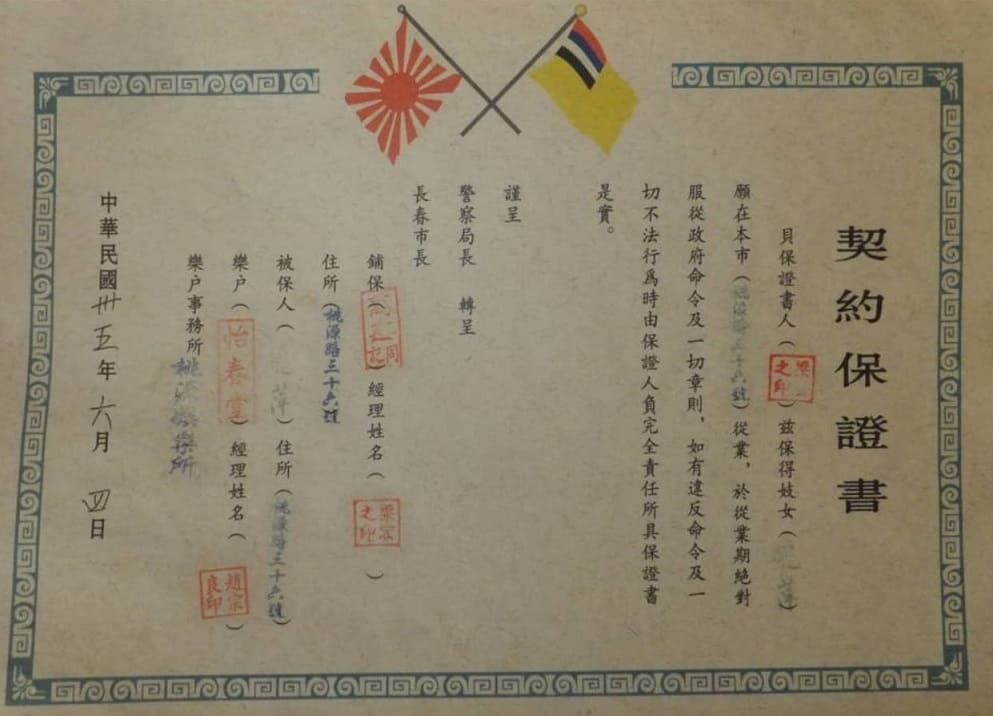 契約保證書
貝保證書人（ 之印 ）茲保得妓女（ 萍）
願在本市（桃源路三十六號）從業，於從業期絕對
服從政府命令及一切章則，如有違反命令及一
切不法行爲時由保證人負完全責任所具保證書
是實。
謹呈
警察局長 轉呈
長春市長
鋪保（ 記）經理姓名（ 之印 ）
住所（桃源路三十六號
被保人（ 萍）住所（桃源路三十六號）
樂户（怡春堂）經理姓名（趙宗良印）
樂户事務所 桃源娛樂所
中華民國卅五年六月四日